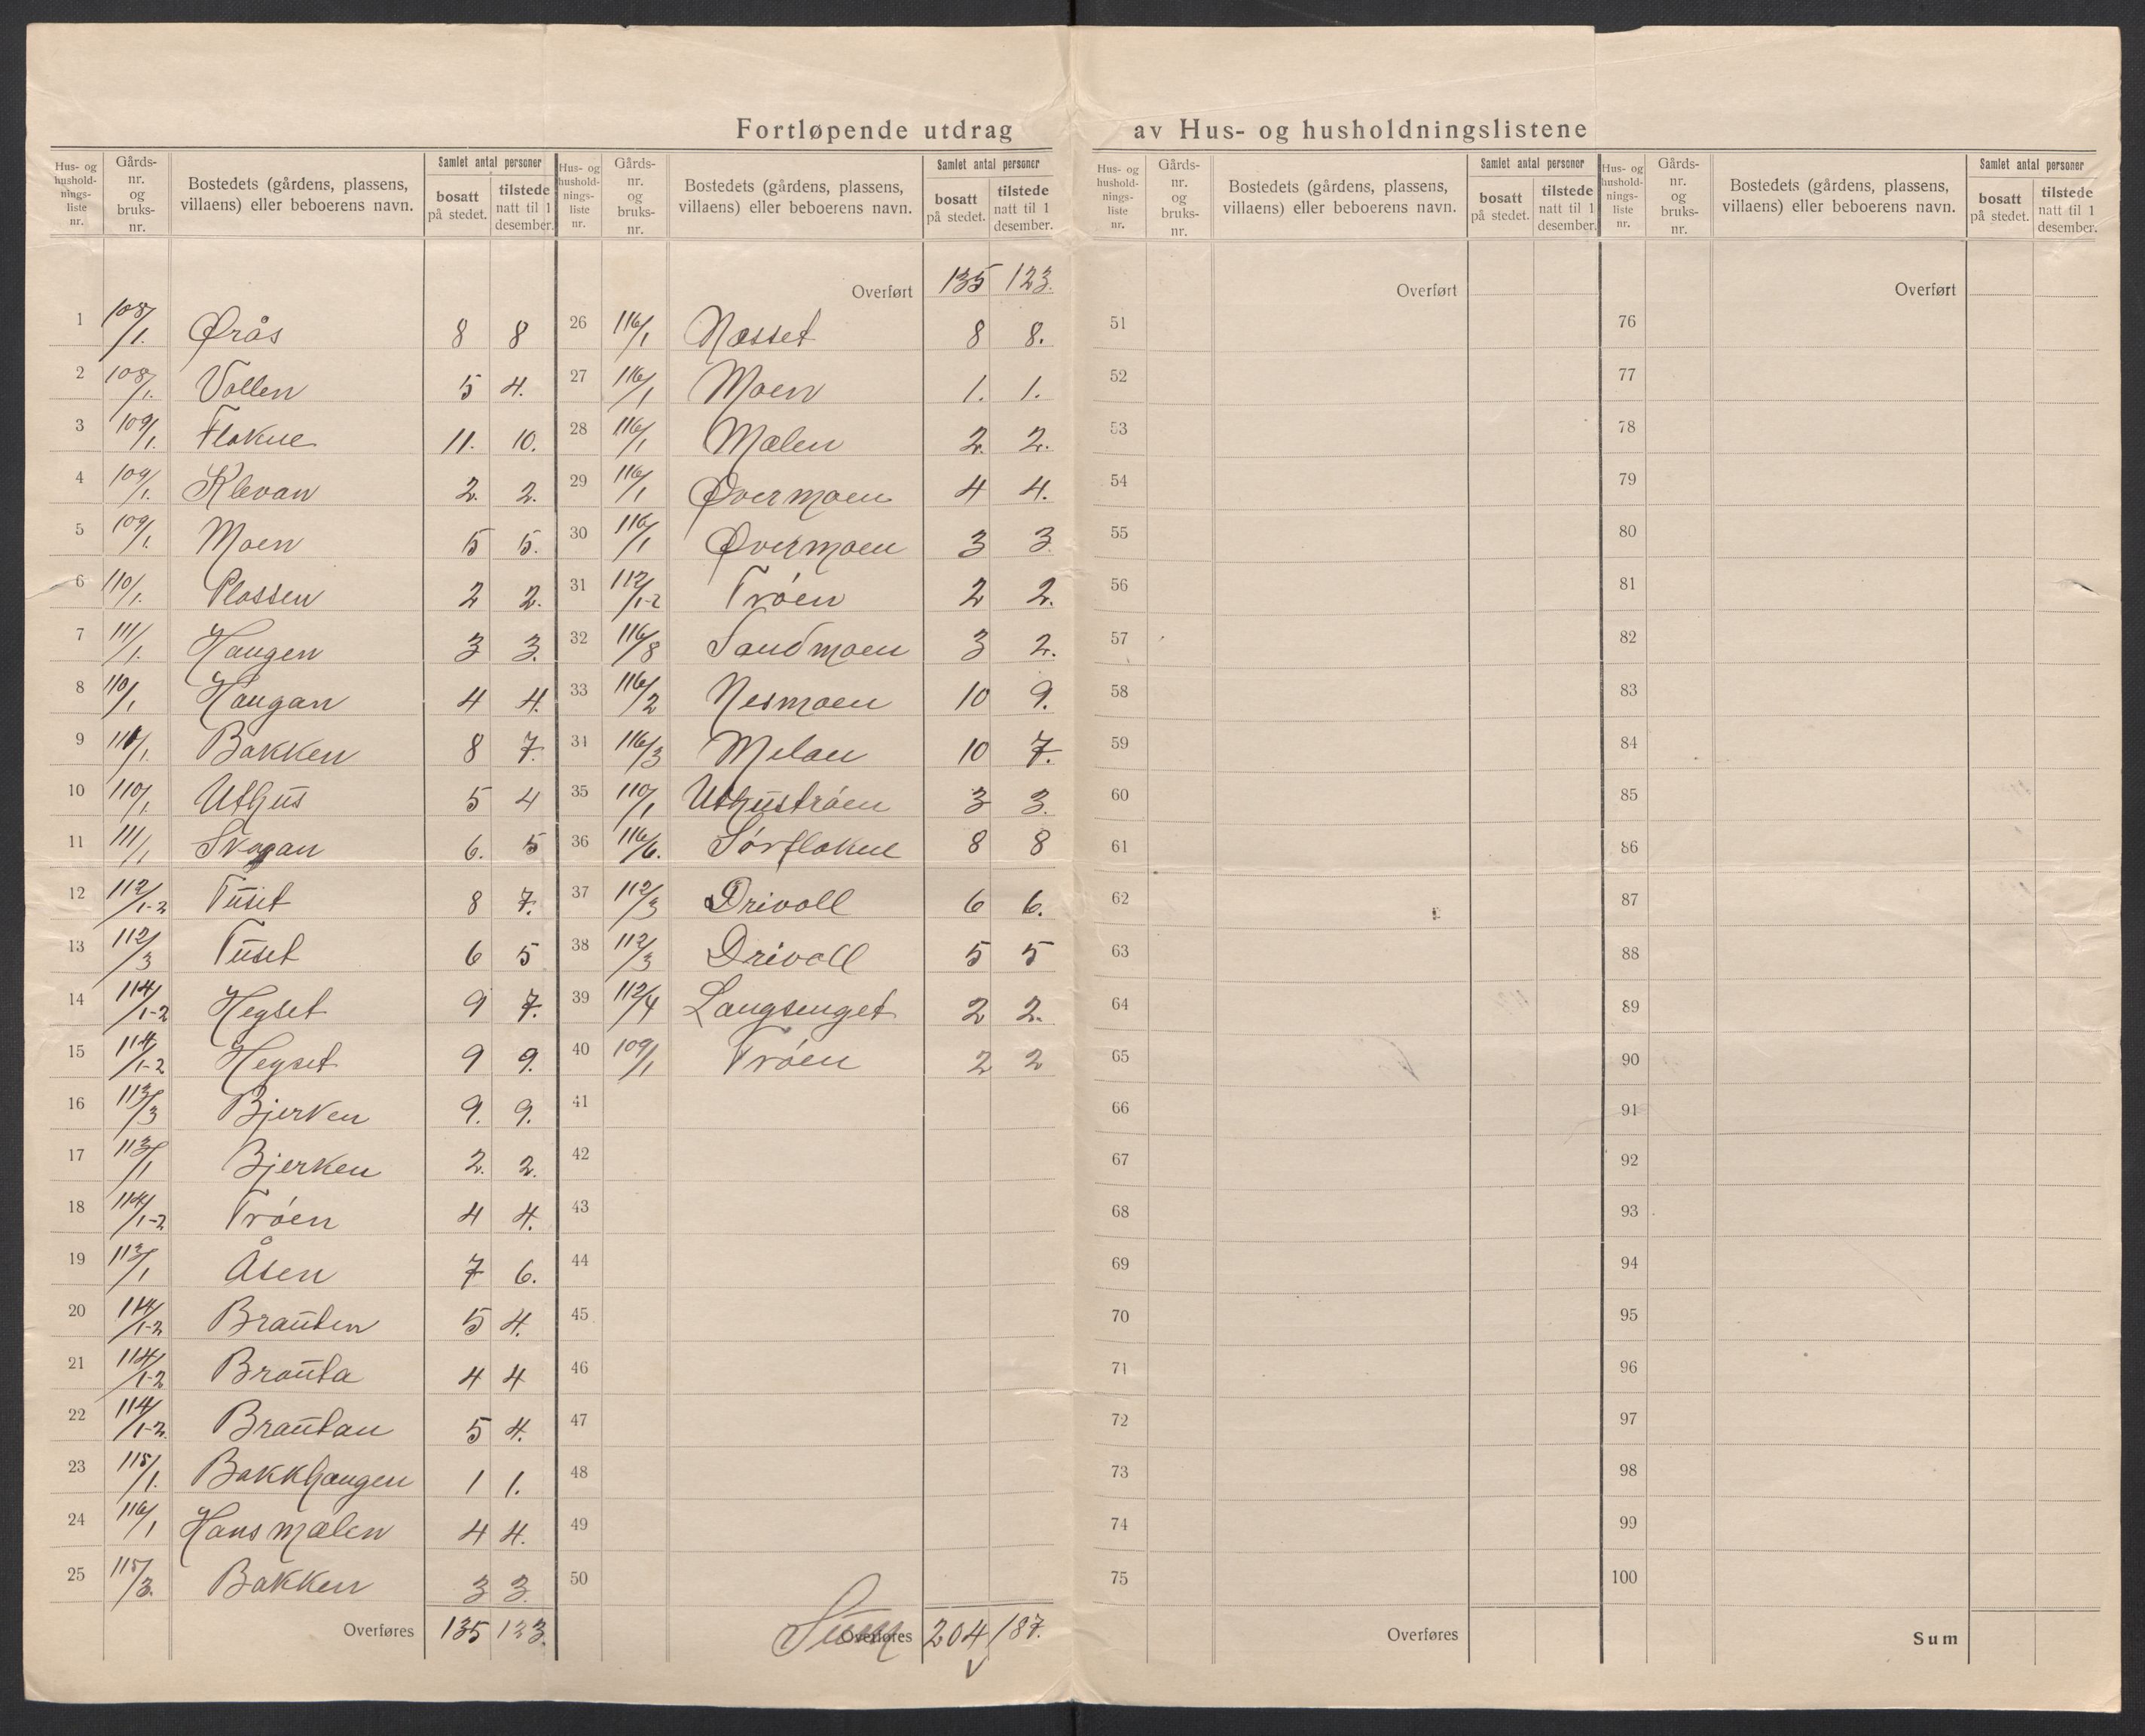 Fortløpende utdrag av Hus- og husholdningslistene
Hus- og hushold-nings-liste nr. Gårds-nr. og bruks-nr. Bostedets (gårdens, plassens, villaens) eller beboerens navn. Samlet antal personer bosatt på stedet. tilstede natt til 1 desember.
1 108/1. Ørås 8 8
2 108/1. Vollen 5 4.
3 109/1. Flakne 11. 10.
4 109/1. Klevan 2. 2.
5 109/1. Moen 5 5.
6 110/1. Plassen 2 2.
7 111/1. Haugen 3 3.
8 110/1 Haugan 4 4.
9 110/1. Bakken 8 7.
10 110/1. Uthus 5 4
11 111/1 Skogan 6. 5
12 112/1-2 Tuset 8 7.
13 112/3 Tuset 6 5
14 114/1-2 Hegset 9 7.
15 114/1-2 Hegset 9 9.
16 113/3 Bjerken 9. 9.
17 113/1 Bjerken 2. 2.
18 114/1-2 Trøen 4 4.
19 113/1 Åsen 7 6.
20 114/1-2 Brauten 5 4.
21 114/1-2 Brauta 4 4
22 114/1-2. Brautan 5 4.
23 115/1. Bakkhaugen 1 1.
24 116/1 Hansmælen 4 4.
25 115/3. Bakken 3 3.
Overføres 135 123.
Hus- og hushold-nings-liste nr. Gårds-nr. og bruks-nr. Bostedets (gårdens, plassens, villaens) eller beboerens navn. Samlet antal personer bosatt på stedet. tilstede natt til 1 desember.
Overført 135 123.
26 116/1 Næsset 8 8.
27 116/1 Moen 1. 1.
28 116/1 Mælen 2. 2.
29 116/1 Øvermoen 4 4.
30 116/1 Øvermoen 3 3
31 112/1-2 Trøen 2 2.
32 116/8 Sandmoen 3 2.
33 116/2 Nesmoen 10 9.
34 116/3 Melan 10 7.
35 110/1 Uthustrøen 3 3.
36 116/6. Sørflakne 8 8
37 112/3 Drivoll 6 6.
38 112/3 Drivoll 5 5
39 112/4 Langsenget 2 2.
40 109/1 Trøen 2 2
41
42
43
44
45
46
47
48
49
50
Overføres Sum 204 187.
Hus- og hushold-nings-liste nr. Gårds-nr. og bruks-nr. Bostedets (gårdens, plassens, villaens) eller beboerens navn. Samlet antal personer bosatt på stedet. tilstede natt til 1 desember.
Overført
51
52
53
54
55
56
57
58
59
60
61
62
63
64
65
66
67
68
69
70
71
72
73
74
75
Overføres
Hus- og hushold-nings-liste nr. Gårds-nr. og bruks-nr. Bostedets (gårdens, plassens, villaens) eller beboerens navn. Samlet antal personer bosatt på stedet. tilstede natt til 1 desember.
Overført
76
77
78
79
80
81
82
83
84
85
86
87
88
89
90
91
92
93
94
95
96
97
98
99
100
Sum